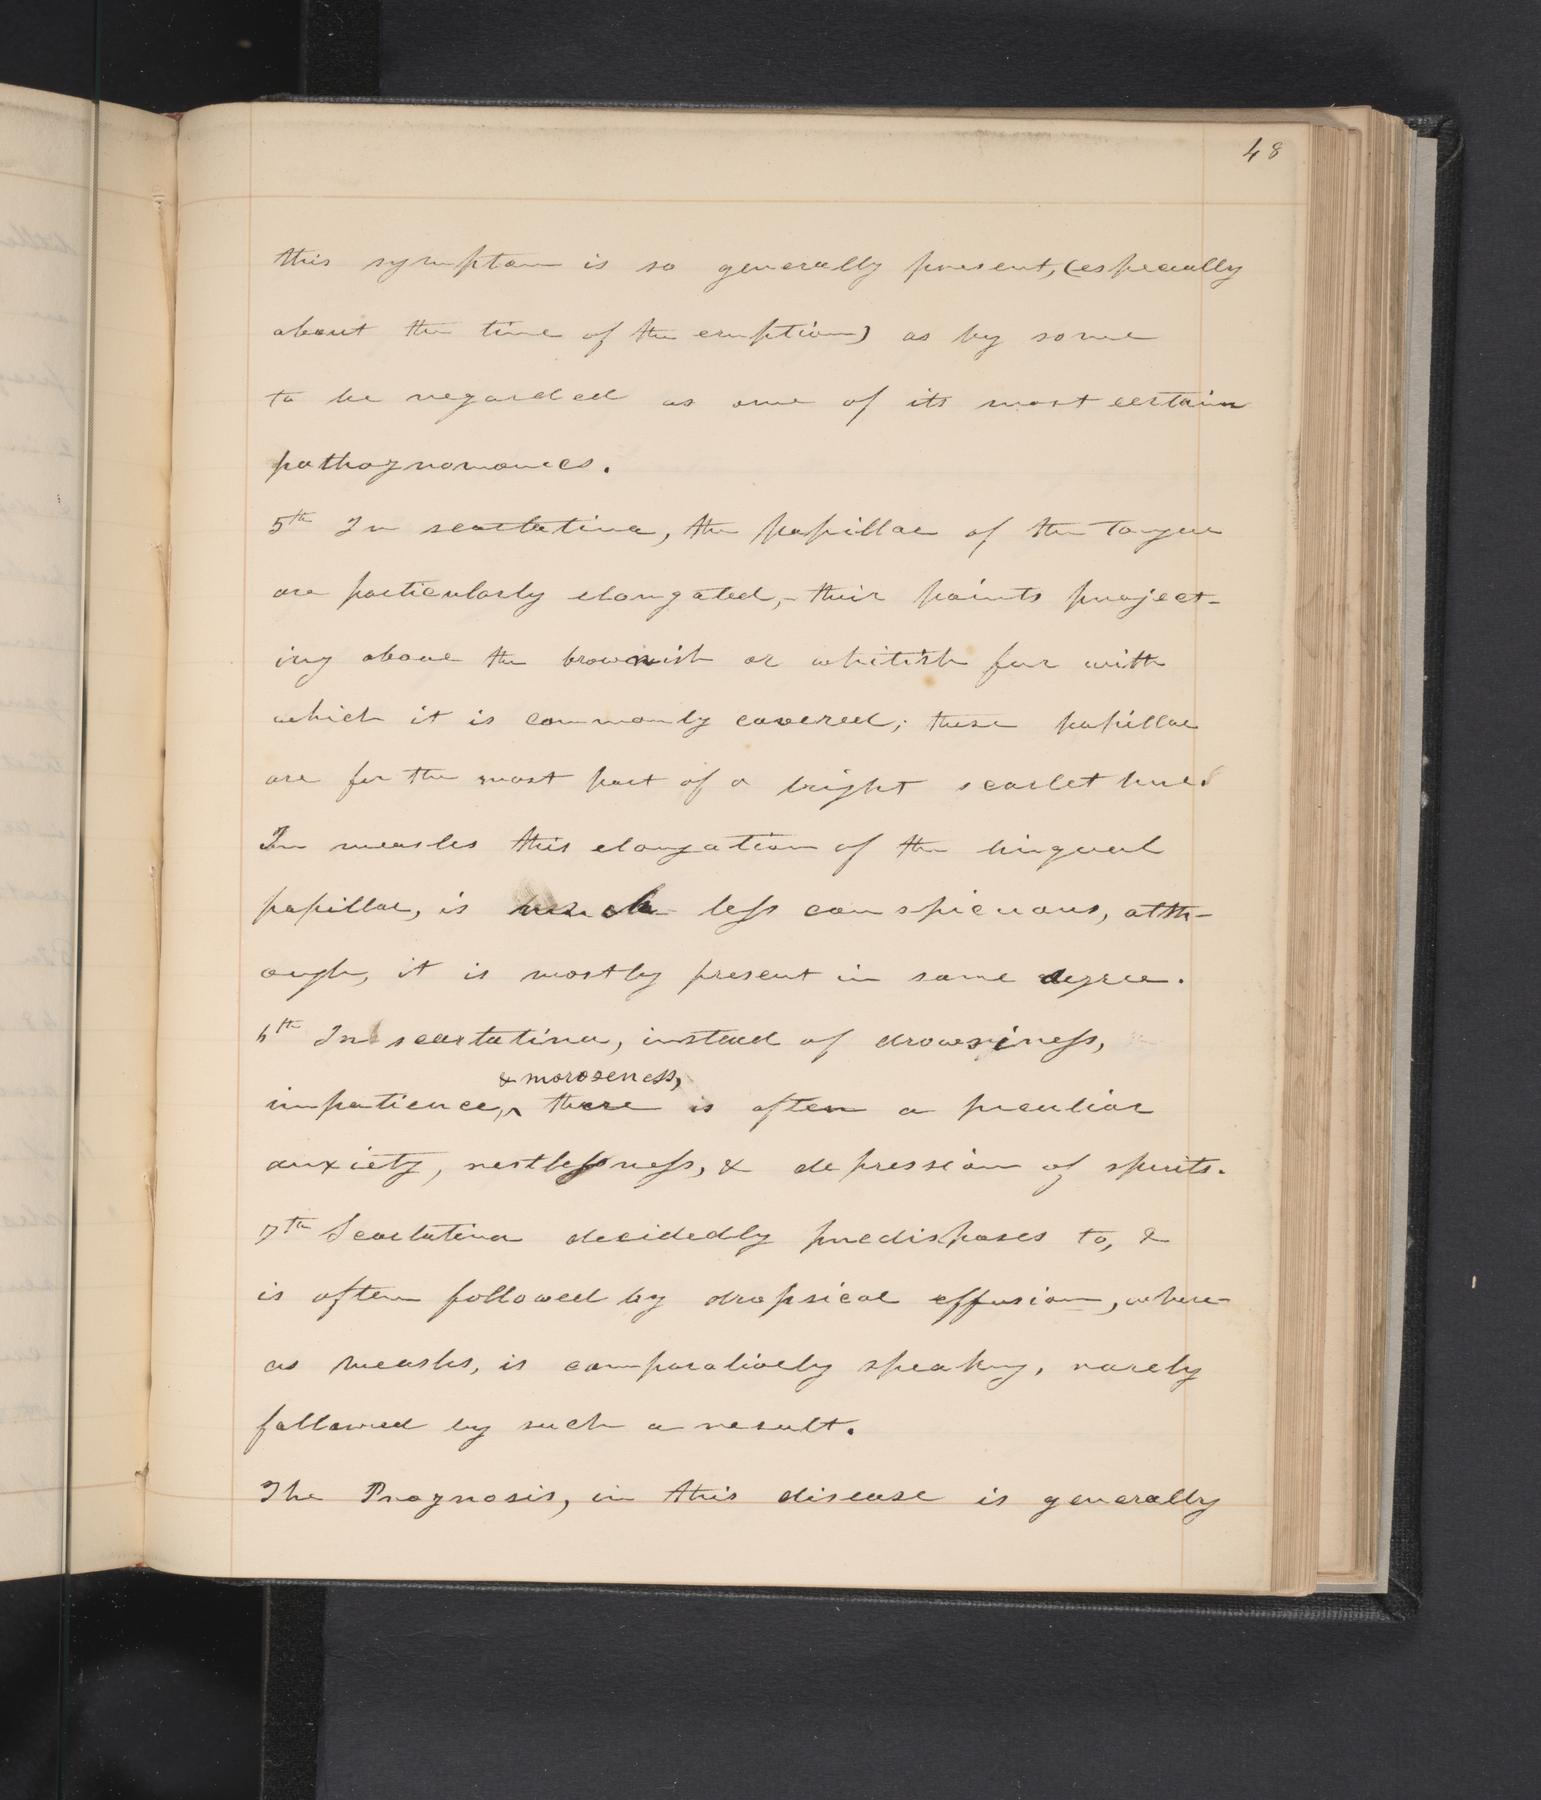 48
this symptom is so generally present, (especially
about the time of the eruption) as by some
to be regarded as one of its most certain
pathognomonics.
5th In scarlatina, the papillae of the Tongue
are particularly elongated,- their points project-
ing above the brownish or whitish fur with
which it is commonly covered; these papillae
are for the most part of a bright scarlet hue.
In measles this elongation of the lingual
papillae, is much less conspicuous, alth-
ough, it is mostly present in some degree.
6th In scarlatina, instead of drowsiness,
& moroseness,
impatience, ^ there is often a peculiar
anxiety, restlessness, & depression of spirits.
7th Scarlatina decidedly predisposes to, &
is often followed by dropsical effusion, where-
as measles, is comparatively speaking, rarely
followed by such a result.
The Prognosis, in this disease is generally